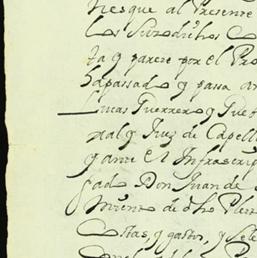 nes que al Presente
los Susodichos
ta q parece por el Pro
ha passado y passa an
Lucas Guerrero y Pue
nal y Juez de Capell
y ante el Infrascrip
gado Don Juan de
miento de dho Pley
Costas, y gastos, y se le